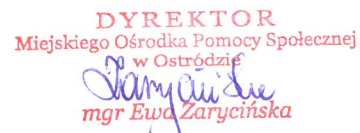 DYREKTOR
Miejskiego Ośrodka Pomocy Społecznej
w Ostródzie
mgr Ewa Zarycińska